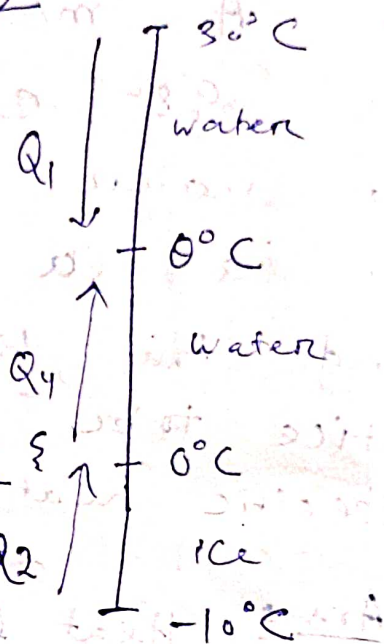 30°C
water
Q1
θ°C
water
Q4
0°C
Q2
ice
-10°C